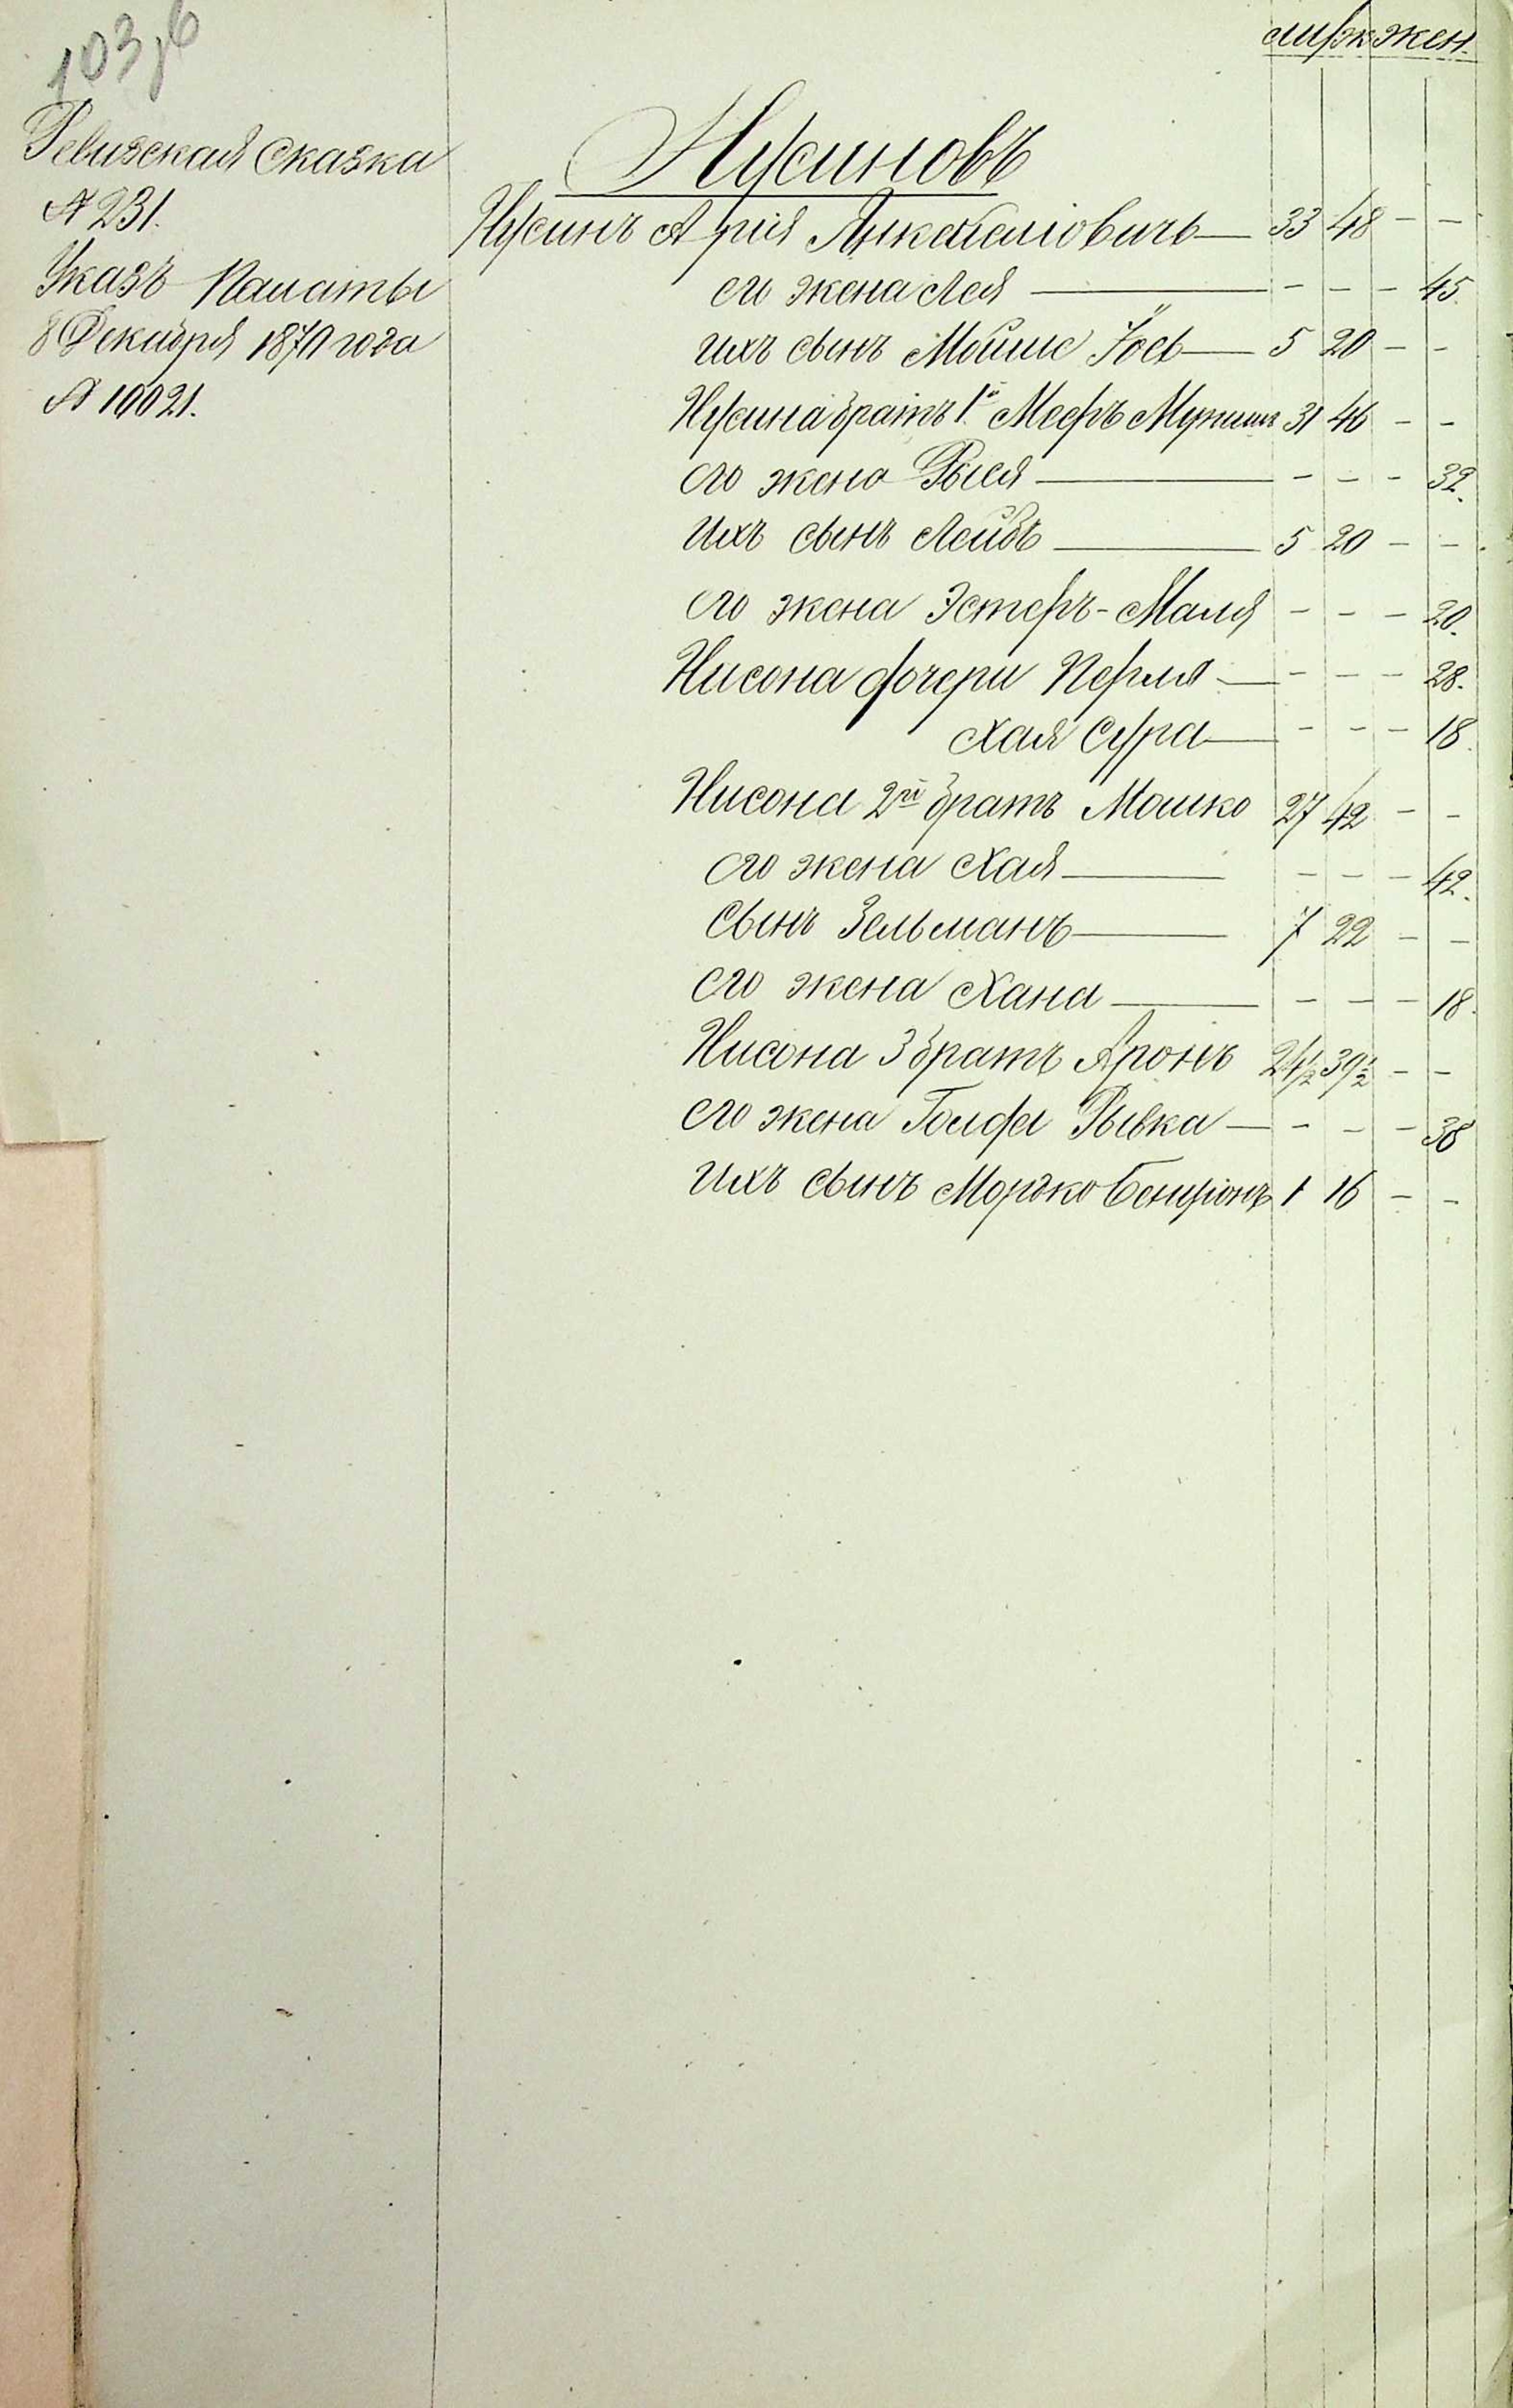 103 76
муж. жен.
Ревизская Сказка
№ 231.
Указъ Палаты
8 Декабря 1870 года
№ 10021.
Нусиновъ
Нусинъ Арія Янкелевичъ — 33 48 - -
его жена Лея — - - - 45.
ихъ сынъ Мойше Іось — 5 20 - -
Нусина братъ 1й Мееръ 31 46 - -
его жена Рыся — - - - 32.
ихъ сынъ Лейбъ — 5 20 - -
его жена Эстеръ-Маля - - - 20.
Нисона дочери Перля — - - - 28.
Хая Сура — - - - 18.
Нисона 2й братъ Мошко 27 42 - -
его жена Хая — - - - 42.
сынъ Зельманъ — 7 22 - -
его жена Хана — - - - 18.
Нисона 3 братъ Аронъ 24½ 39½ - -
его жена Голда Рывка — - - - 38
ихъ сынъ Мордко Бенціонъ 1 16 - -